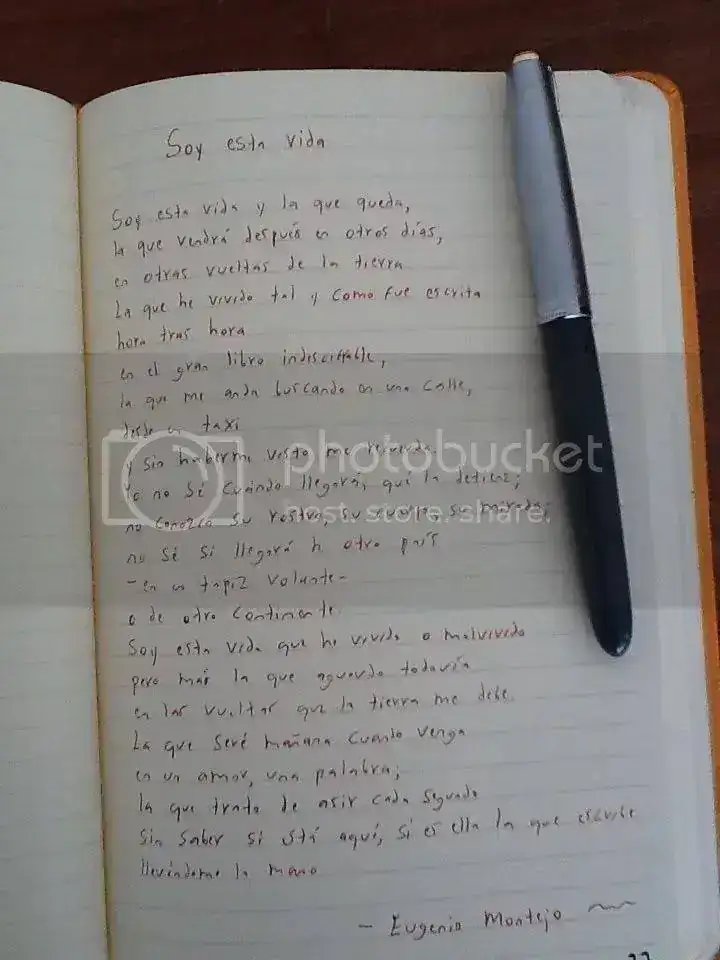 Soy esta vida
Soy esta vida y la que queda,
la que vendrá después en otros días,
en otras vueltas de la tierra
La que he vivido tal y como fue escrita
hora tras hora
en el gran libro indescifrable,
la que me anda buscando en una calle,
desde un taxi
y sin haberme visto me recuerda.
Yo no sé cuándo llegará, qué la detiene;
no conozco su rostro, su cuerpo, su mirada;
no sé si llegará de otro país
-en un tapiz volante-
o de otro continente.
Soy esta vida que he vivido o malvivido
pero más la que aguardo todavía
en las vueltas que la tierra me debe.
La que seré mañana cuando venga
en un amor, una palabra;
la que trato de asir cada segundo
sin saber si está aquí, si es ella la que escribe
llevándome la mano
- Eugenio Montejo
photobucket
host. store. share.